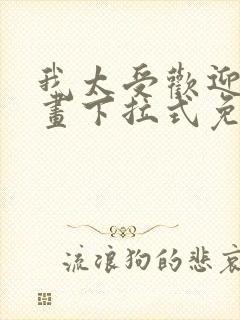 我太受歡迎
畫下拉式免
流浪狗的悲哀